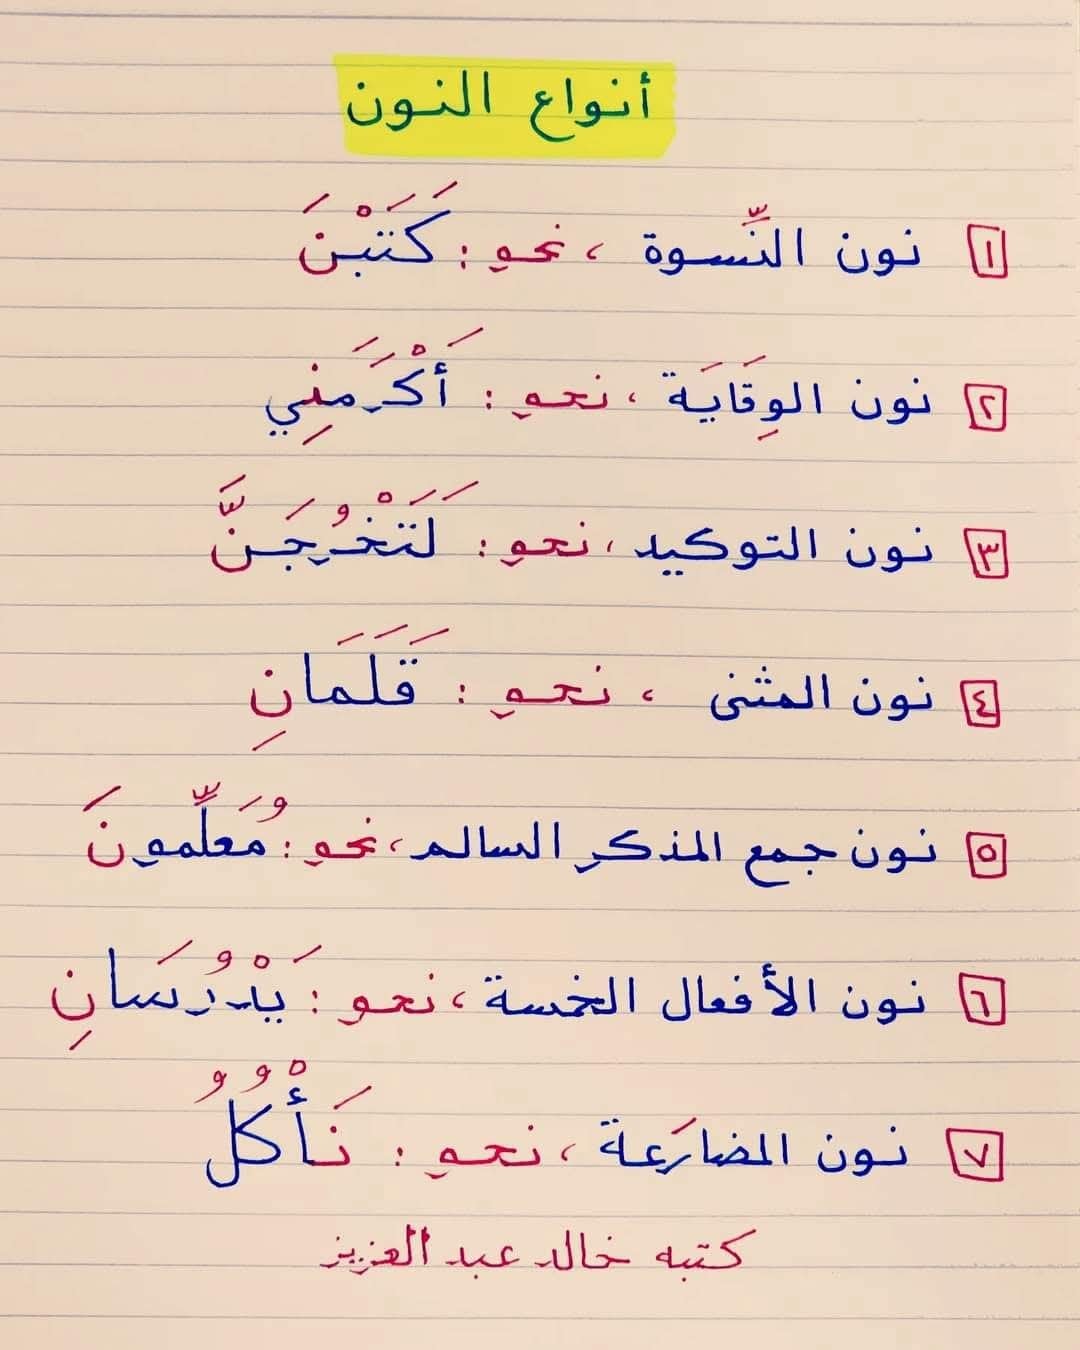 أنواع النون
١ نون النِّسوة ، نحو : كَتَبْنَ
٢ نون الوِقَايَة ، نحو : أَكْرَمَنِي
٣ نون التوكيد ، نحو : لَتَخْرُجَنَّ
٤ نون المثنى ، نحو : قَلَمَانِ
٥ نون جمع المذكر السالم ، نحو : مُعَلِّمونَ
٦ نون الأفعال الخمسة ، نحو : يَدْرُسَانِ
٧ نون المضارَعة ، نحو : نَأْكُلُ
كتبه خالد عبد العزيز